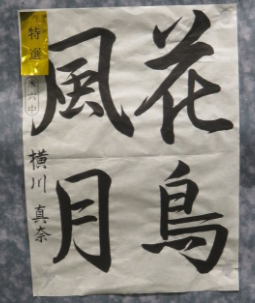 花鳥
風月
横川 真奈
特選